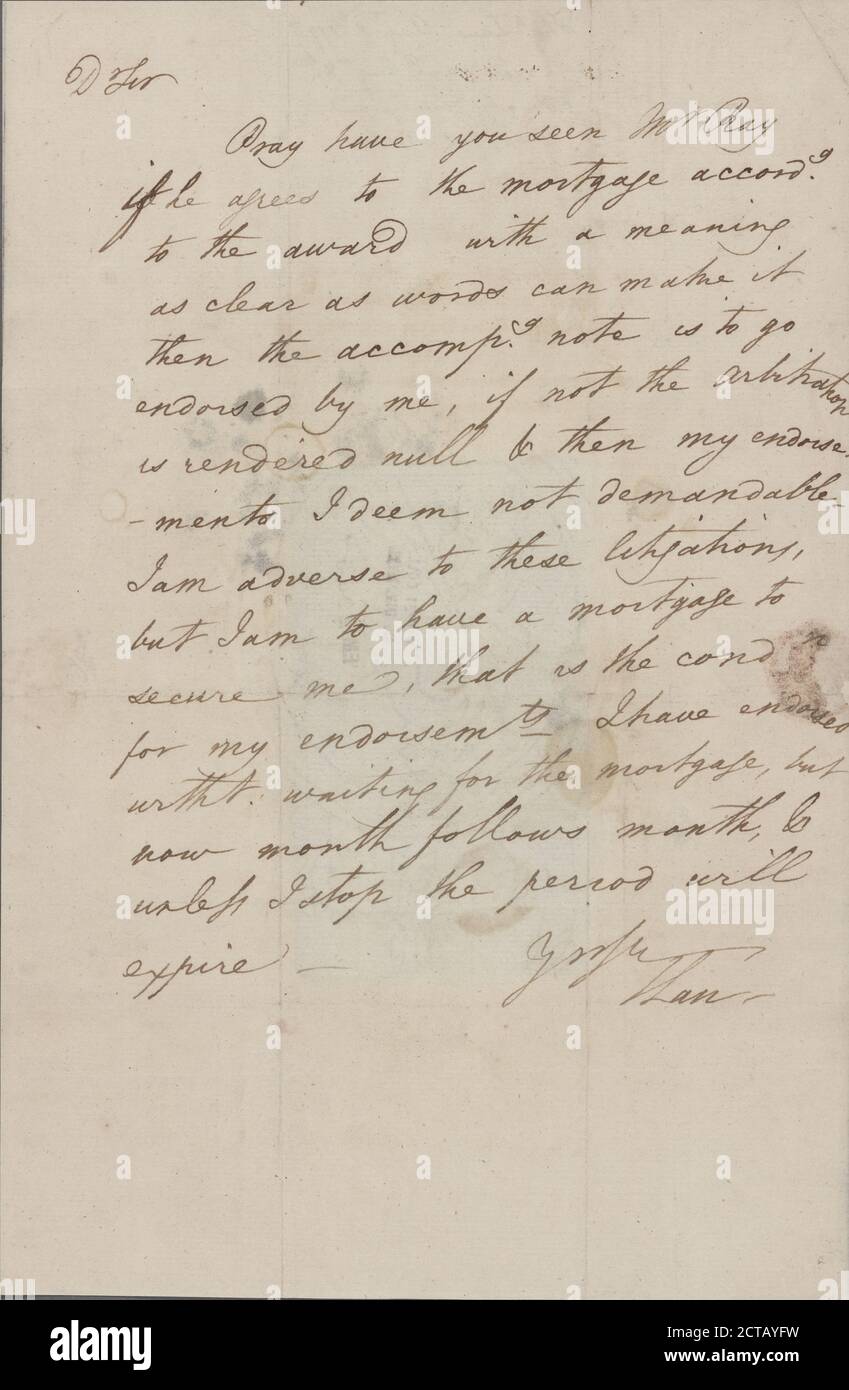 D Sir
Pray have you seen Mr Ray
if he agrees to the mortgage accordg.
to the award with a meaning
as clear as words can make it
then the accompg. note is to go
endorsed by me, if not the arbitration
is rendered null & then my endorse-
-ments I deem not demandable-
I am adverse to these litigations,
but I am to have a mortgage to
secure me, that is the condn
for my endorsemts I have endorsed
witht. waiting for the mortgage, but
now month follows month, &
unless I stop the period will
expire —
alamy
Image ID: 2CTAYFW
www.alamy.com